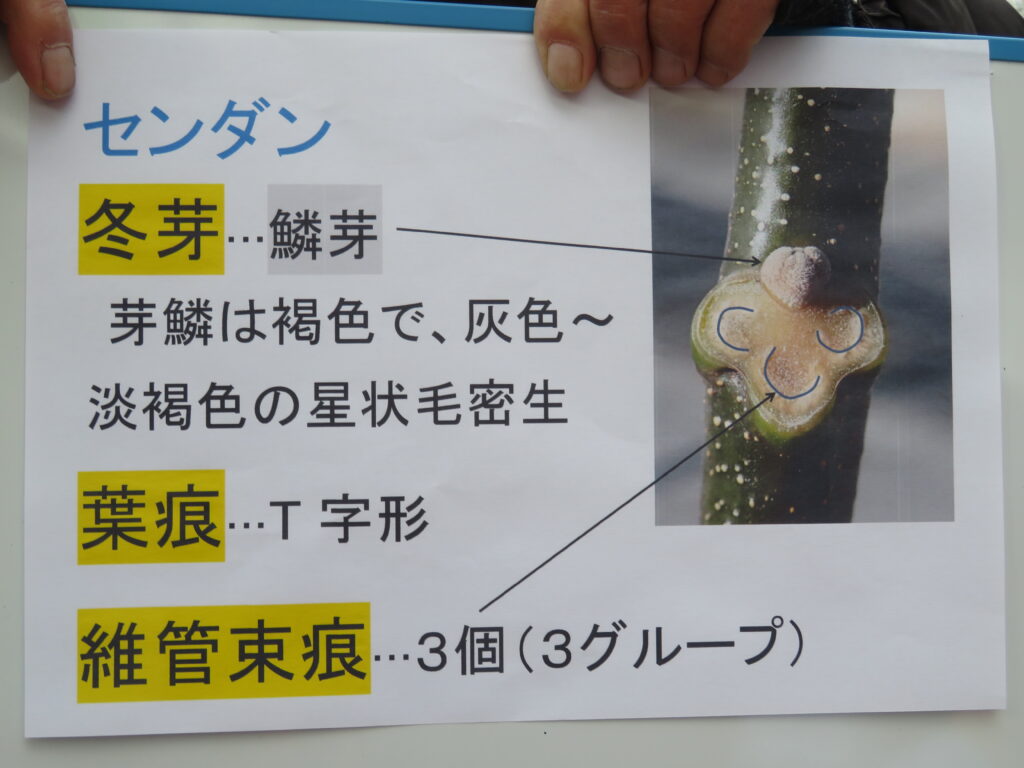 センダン
冬芽…鱗芽
芽鱗は褐色で、灰色～
淡褐色の星状毛密生
葉痕…T字形
維管束痕…3個（3グループ）